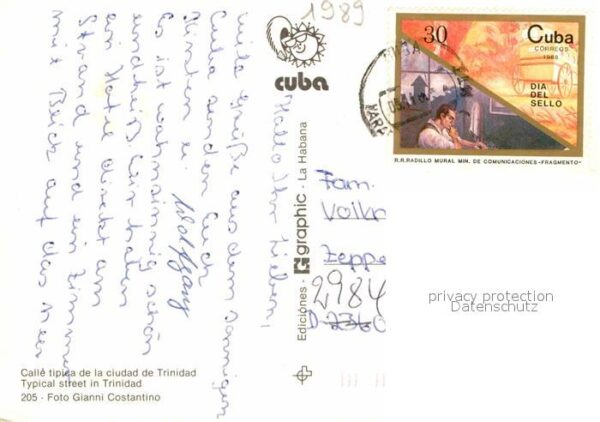 1989
cuba
30 Cuba
CORREOS
1988
DIA
DEL
SELLO
R.R.RADILLO MURAL MIN. DE COMUNICACIONES-FRAGMENTO-
Hallo Ihr Lieben,
viele Grüße aus dem sonnigen
Cuba senden Euch
u. Wolfgang
Es ist wahnsinnig schön
ein Hotel direkt am
Strand und ein Zimmer
mit Blick auf das Meer
Ediciónes graphic - La Habana
Fam.
Zeppe
2984
D-2360
privacy protection
Datenschutz
Calle tipica de la ciudad de Trinidad
Typical street in Trinidad
205 - Foto Gianni Costantino